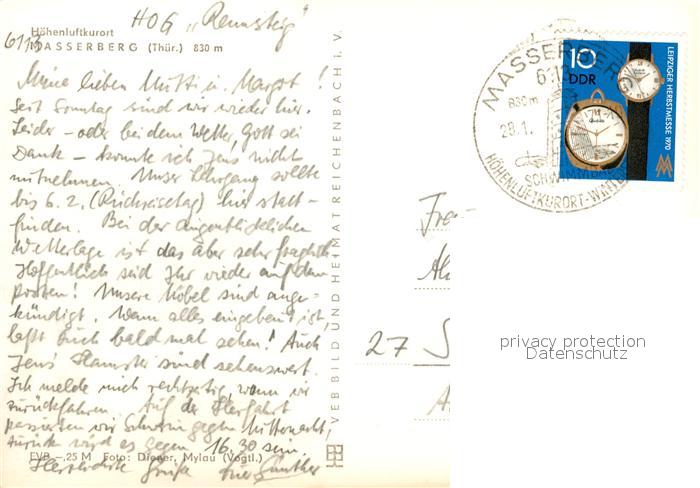 HOG "Rennsteig"
Höhenluftkurort
6113
MASSERBERG (Thür.) 830 m
Meine lieben Mutti u. Margot!
Seit Sonntag sind wir wieder hier.
Leider – oder bei dem Wetter, Gott sei
Dank – konnte ich Jens nicht
mitnehmen. Unser Lehrgang sollte
bis 6. 2. (Rückreisetag) hier statt-
finden. Bei der augenblicklichen
Wetterlage ist das aber sehr fraglich.
Hoffentlich seid Ihr wieder auf dem
Posten! Unsere Möbel sind ange-
kündigt. Wenn alles eingeben ist
laßt Euch bald mal sehen! Auch
Jens' Hamster sind sehenswert.
Ich melde mich rechtzeitig, wenn wir
zurückfahren. Auf der Herfahrt
passierten wir Schwerin gegen Mitternacht,
zurück wird es gegen 16.30 sein.
EVP –,25 M Foto: Diener, Mylau (Vogtl.)
Herzlichste Grüße Euer Günther
VEB BILD UND HEIMAT REICHENBACH i. V.
MASSERBERG
611
830m
28.1.
SCHWIMM
HÖHENLUFTKURORT-WINT
10
DDR
LEIPZIGER HERBSTMESSE 1970
MM
Frau
27 S
privacy protection
Datenschutz